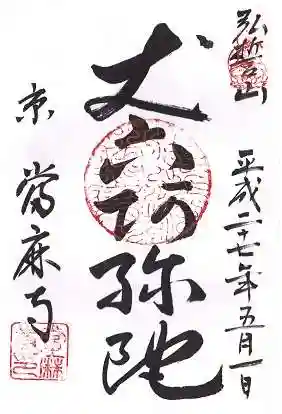 平成二十七年五月一日
丈六阿弥陀
京 當麻寺